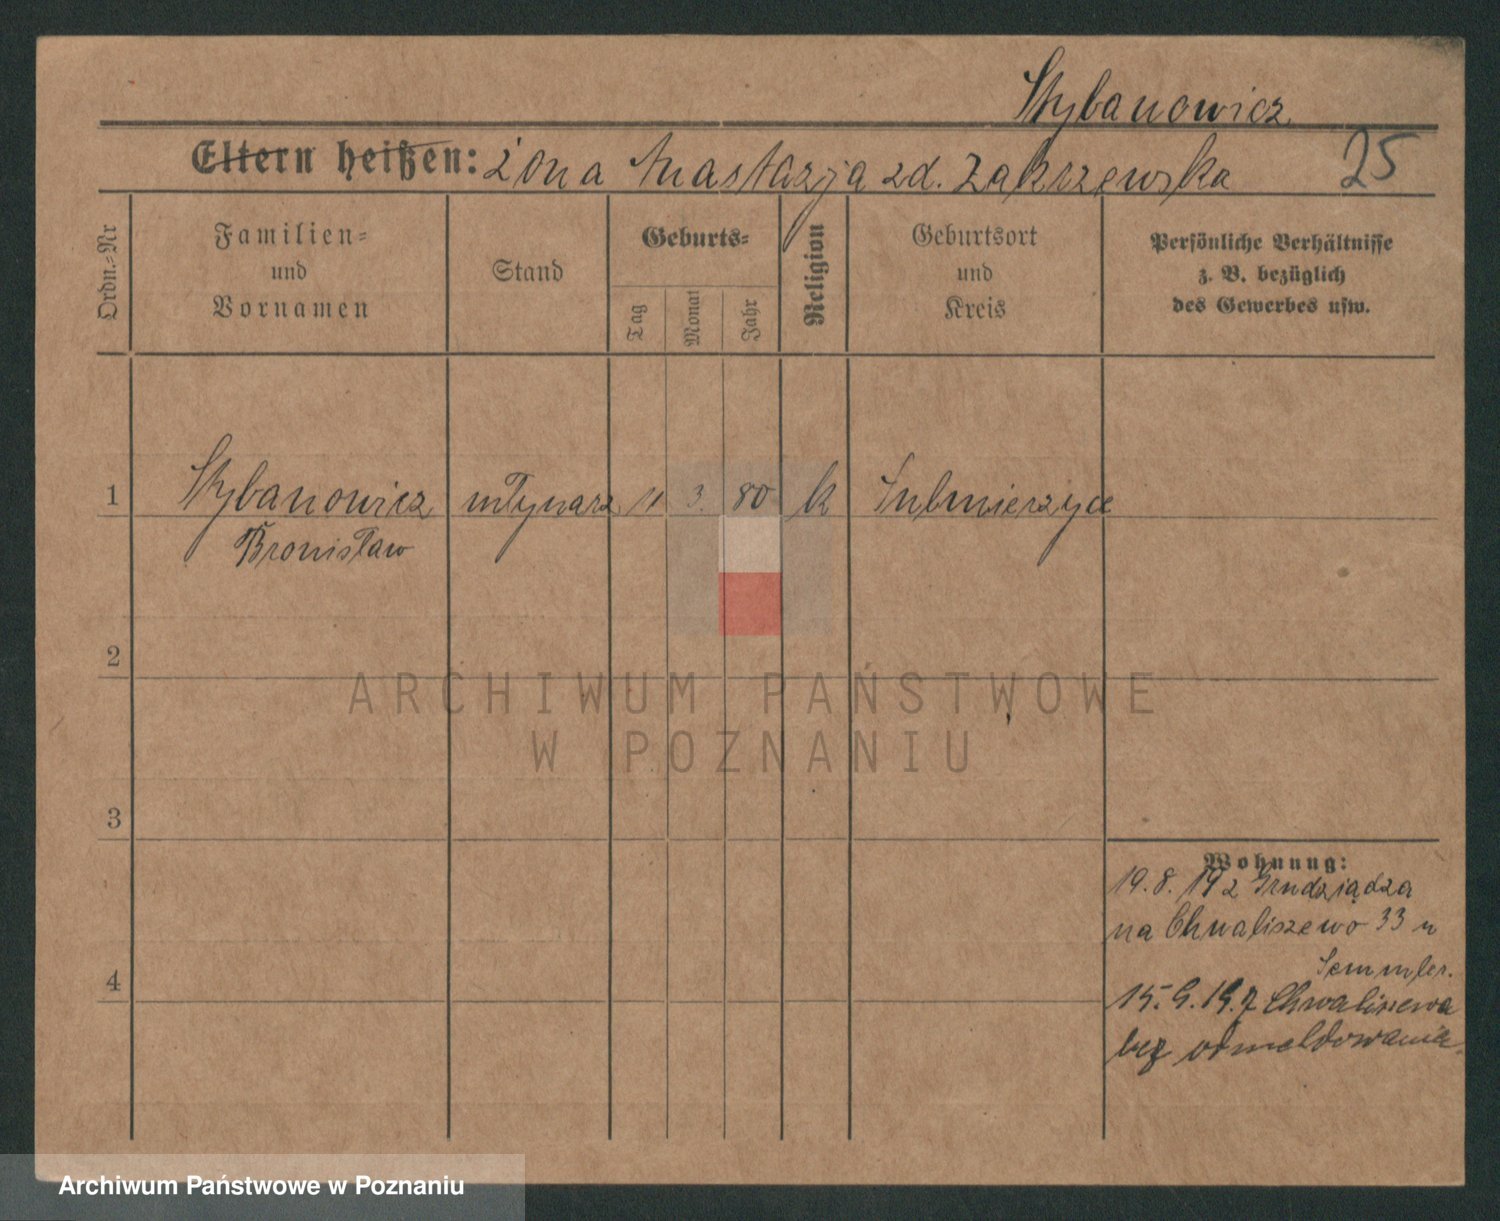 Stybanowicz
Eltern heißen: żona Anastazja zd. Zakrzewska 25
Ordn.-Nr
Familien-
und
Vornamen
Stand
Geburts-
Tag
Monat
Jahr
Religion
Geburtsort
und
Kreis
Persönliche Verhältnisse
z. B. bezüglich
des Gewerbes usw.
1 Stybanowicz młynarz 11 3. 80 k Sulmierzyce
Bronisław
2
ARCHIWUM PAŃSTWOWE
W POZNANIU
3
Wohnung:
19. 8. 19 z Grudziądza
na Chwaliszewo 33 u
Semmler.
15. 9. 19. z Chwaliszewa
4
bez odmeldowania
Archiwum Państwowe w Poznaniu